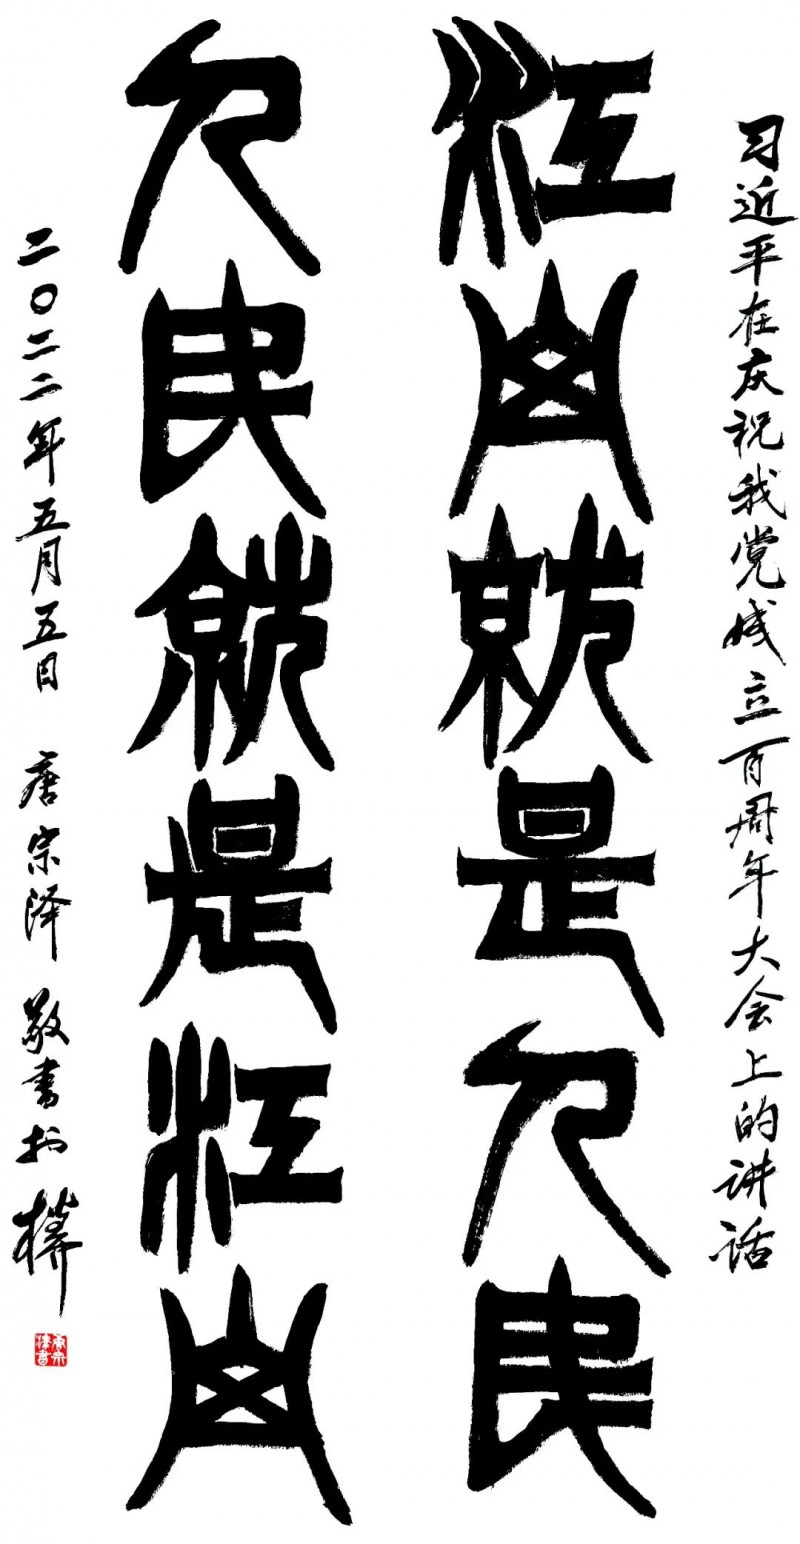 习近平在庆祝我党成立百周年大会上的讲话
江山就是人民
人民就是江山
二〇二二年五月五日 唐宗泽 敬书於